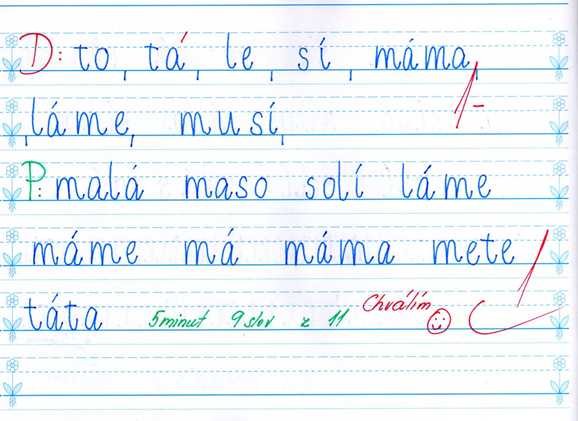 D: to, tá, le, sí, máma,
láme, musí,
1-
P: malá maso solí láme
máme má máma mete
táta 5minut 9 slov z 11 Chválím 1